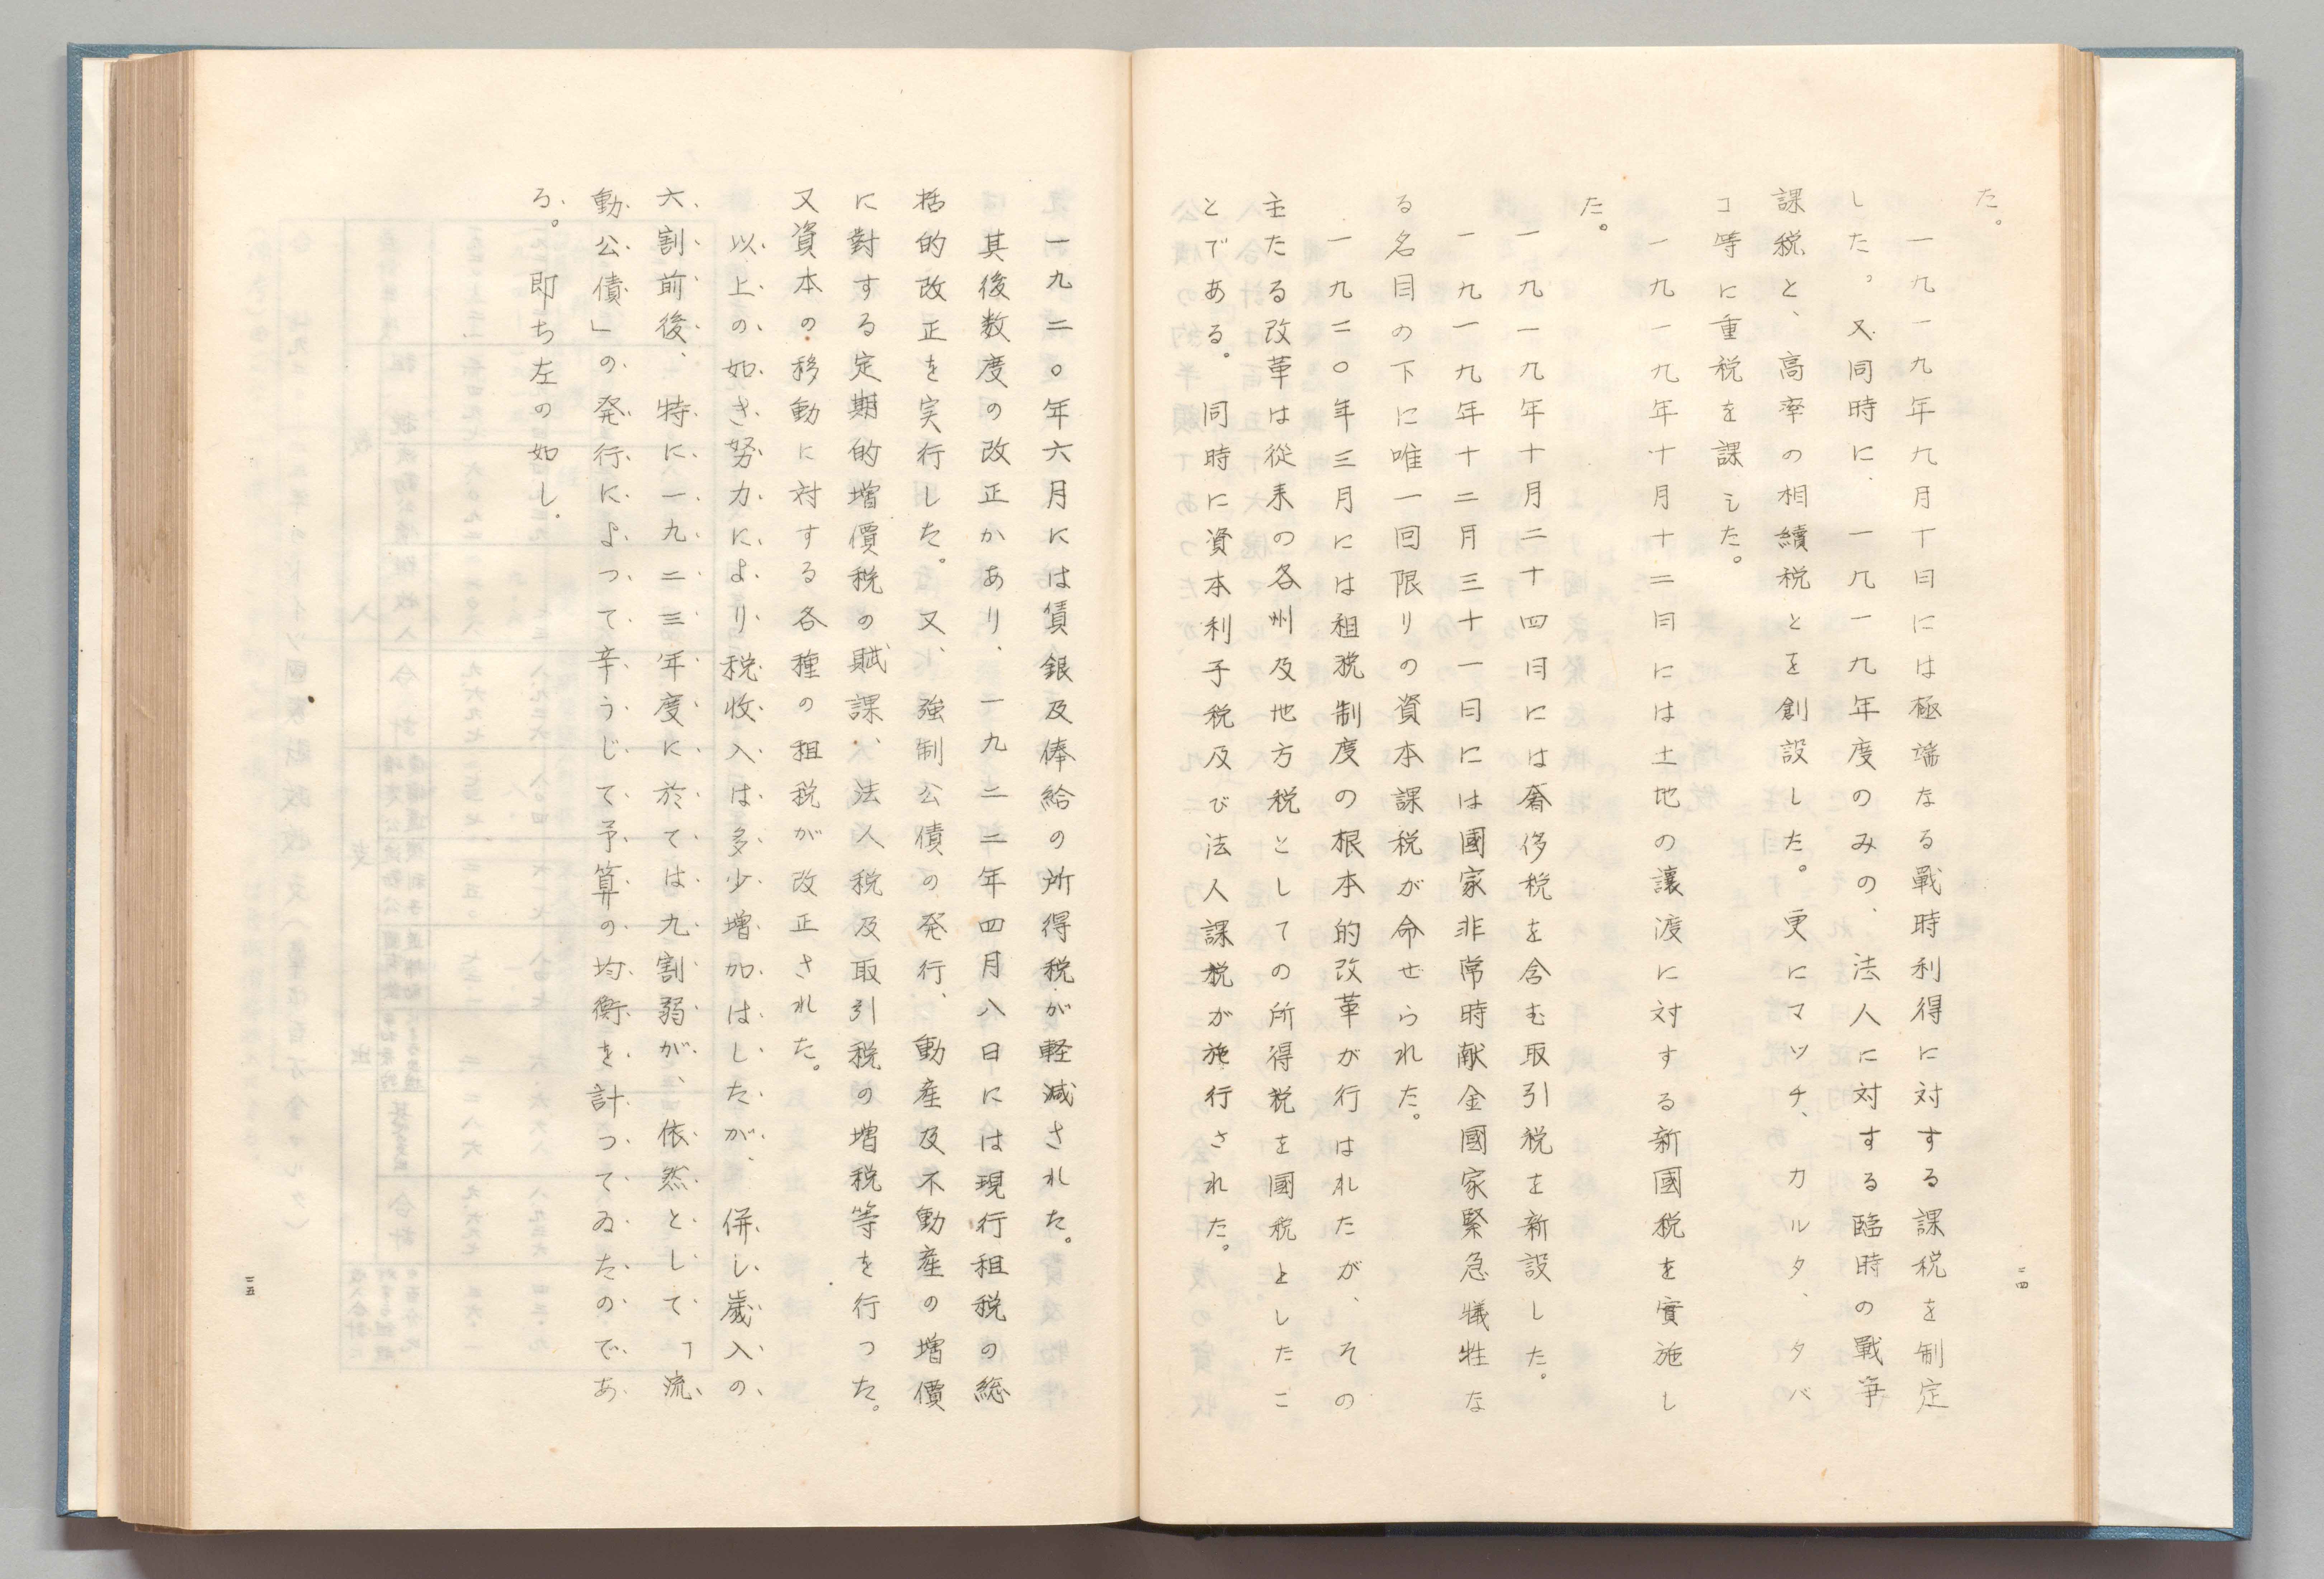 た。
一九一九年九月十日には極端なる戰時利得に対する課税を制定
した。又同時に、一九一九年度のみの、法人に対する臨時の戰争
課税と、高率の相續税とを創設した。更にマッチ、カルタ、タバ
コ等に重税を課した。
一九一九年十月十二日には土地の讓渡に対する新國税を實施し
た。
一九一九年十月二十四日には奢侈税を含む取引税を新設した。
一九一九年十二月三十一日には國家非常時献金國家緊急犧牲な
る名目の下に唯一回限りの資本課税が命せられた。
一九二〇年三月には租税制度の根本的改革が行はれたが、その
主たる改革は從来の各州及地方税としての所得税を國税としたこ
とである。同時に資本利子税及び法人課税が施行された。
二四
一九二〇年六月には賃銀及俸給の所得税が軽減された。
其後数度の改正かあり、一九二二年四月八日には現行租税の総
括的改正を実行した。又、強制公債の発行、動産及不動産の増價
に對する定期的増價税の賦課、法人税及取引税の増税等を行つた。
又資本の移動に対する各種の租税が改正された。
以上の如き努力により税收入は多少増加はしたが、併し歲入の
六割前後、特に一九二三年度に於ては九割弱が、依然として「流
動公債」の発行によつて辛うじて予算の均衡を計つてゐたのであ
る。即ち左の如し.
二五